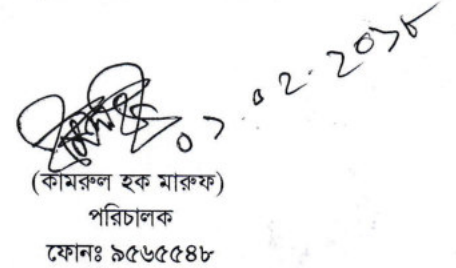 ০১.০২.২০১৮
(কামরুল হক মারুফ)
পরিচালক
ফোনঃ ৯৫৬৫৫৪৮